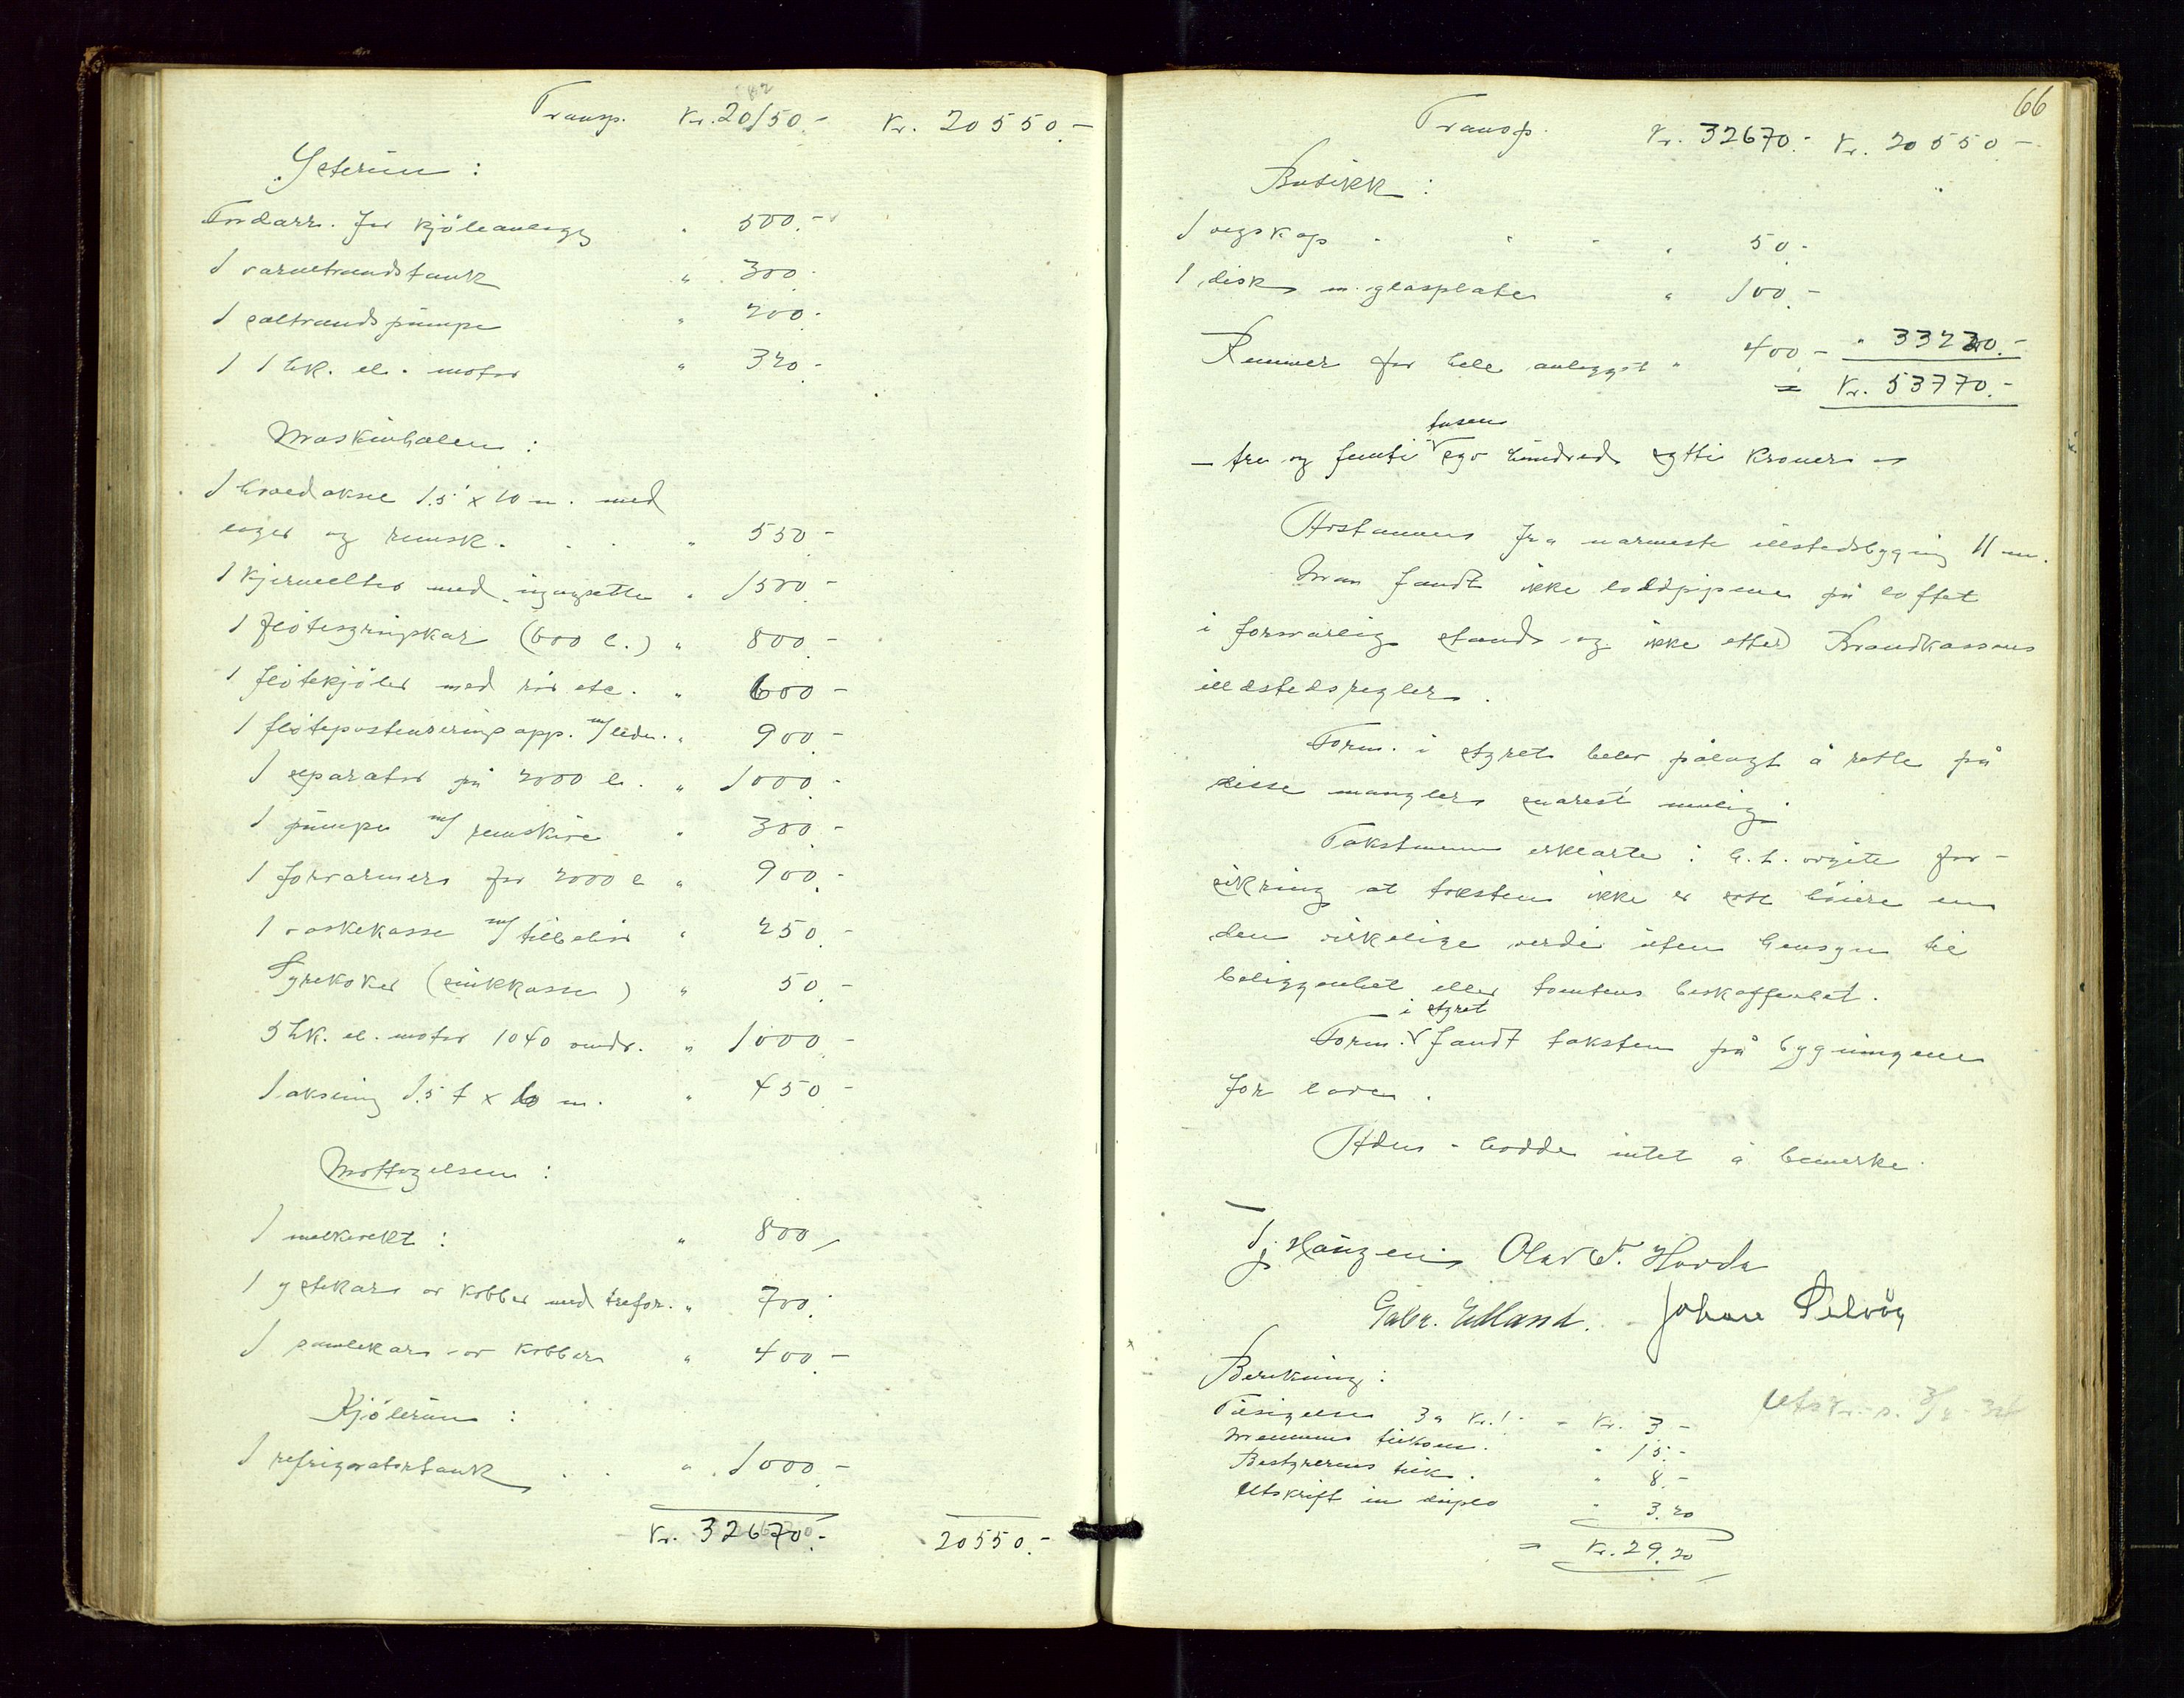 Transp. Kr. 20150.- Kr. 20550.-
Ysterium:
for kjöleanlegg " 500.-
1 varmetvandstank " 300.-
1 saltvandspumpe " 200.-
1 1 hk. el. motor " 320.-
Maskinhalen:
1 hovedaksel 1.5" x 10 m. med
lager og remsk. . . . " 550.-
1 kjernelter med igangsetter " 1500.-
1 flötesyringskar (600 l.) " 800.-
1 flötekjöler med rör etc. " 600.-
1 flötepasteuriseringsapp. m/ledn. " 900.-
1 separator på 2000 l. " 1000.-
1 pumpe m/ remskive " 300.-
1 forvarmer for 2000 l " 900.-
1 vaskekasse m/ tilbehör " 250.-
Syrekoker (sinkkasse) " 50.-
5 hk. el. motor 1040 omdr. " 1000.-
1 aksling 1.5 t x 6 m. " 450.-
Mottagelsen:
1 melkevekt: " 800.-
1 ystekar av kobber med trefor. " 700.-
1 samlekar av kobber " 400.-
Kjölerum:
1 refrigeratortank . . " 1000.-
Kr. 32670.- 20550.-
66
Transp. Kr. 32670.- Kr. 20550.-
Butikk:
1 vegskap " " " " 50.-
1 disk m. glasplater " 100.-
Remmer for hele anlegget " 400.- " 33220.-
= Kr. 53770.-
tusen
- tre og femti syv hundred sytti kroner -
Avstanden fra nærmeste illstedsbygning 11 m.
Man fandt ikke loddpipene på loftet
i forsvarlig stand og ikke etter Brandkassens
illdstedsregler.
Form. i styret blev pålagt å rette på
disse mangler snarest mulig.
Takstmenn erklærte i h.t. avgitt for-
sikring at taksten ikke er satt höiere enn
den virkelige verdi uten hensyn til
beliggenhet eller tomtens beskaffenhet.
i styret
Form. fandt taksten på bygningene
for lave.
Adm. hadde intet å bemerke.
T. J. Haugen Olav T. Hovda
Gabr. Edland. Johan Selvåg
Berekning:
Tilsigelse 3 a Kr. 1.- - Kr. 3.-
Mennenes tilkom. " 15.-
Bestyrerens tilk. " 8.-
Utskrift in duplo " 3.20
= Kr. 29.20
Utskr. s. 3/4 34